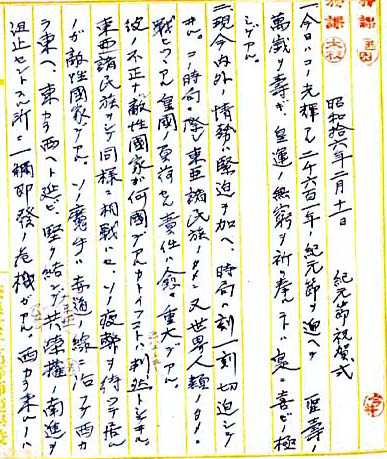 昭和拾六年二月十一日　紀元節祝賀式
一、今日ハコノ光輝アル二千六百一年ノ紀元節ヲ迎ヘテ　聖寿ノ
萬歳ヲ寿ギ、皇運ノ無窮ヲ祈リ奉ルコトハ衷心喜ビノ極
ミデアル。
二、現今内外ノ情勢ハ緊迫ヲ加ヘ、時局ハ刻一刻切迫シテ
キル。コノ時局ニ際シ東亜諸民族ノタメ、又世界人類ノタメニ
戦ヒツツアル皇國ノ負荷セル責任ハ愈々重大デアル。
彼ノ不正ナ敵性國家ガ何國デアルカトイフコトハ判然トシテキル。
東亜諸民族ヲシテ同様ニ相戦ハセ、ソノ疲弊ヲ待ツテ居ル
ノガ敵性國家デアル。ソノ魔手ハ赤道ノ線ニ沿フテ西カ
ラ東ヘ、東カラ西ヘト延ビ、堅ク結ンデ共榮權ノ南進ヲ
阻止セントスル所ニ一触即發ノ危機ガアル。西カラ来ルノハ